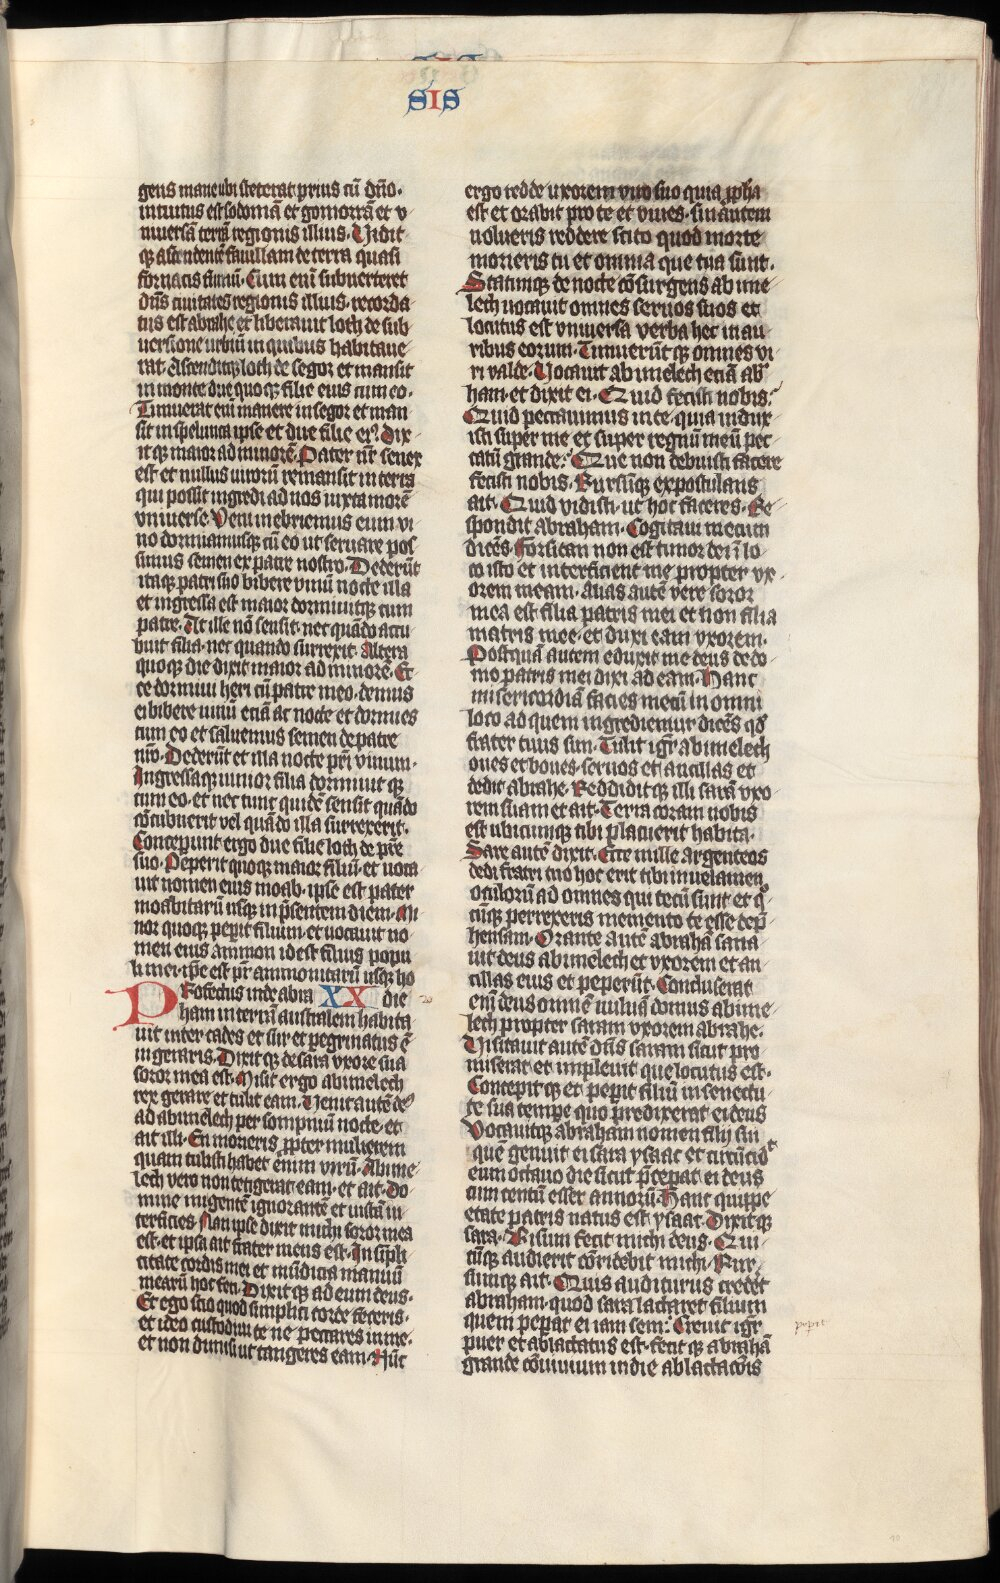 SIS
gens mane ubi steterat prius cū dño.
intuitus est sodomā et gomorrā et v
niuersā terrā regionis illius. Vidit
qꝫ ascendentē fauillam de terra quasi
fornacis fumū. Cum eni subuerteret
dn̄s ciuitates regionis illius. recorda
tus est abrahe et liberauit loth de sub
uersione urbiū in quibus habitaue
rat. Ascenditqꝫ loth de segor et mansit
in monte due quoqꝫ filie eius cum eo.
Timuerat eni manere in segor et man
sit in spelunca ipse et due filie eiꝰ. Dix
itqꝫ maior ad minorē. Pater nr̄ senex
est et nullus uirorū remansit in terra
qui possit ingredi ad nos iuxta morē
vniuerse. Veni inebriemus eum vi
no dormiamusqꝫ cū eo ut seruare pos
simus semen ex patre nostro. Dederūt
itaqꝫ patri suo bibere vinū nocte illa
et ingressa est maior dormiuitqꝫ cum
patre. At ille nō sensit. nec quādo accu
buit filia. nec quando surrexit. Altera
quoqꝫ die dixit maior ad minorē. Ec
ce dormiui heri cū patre meo. demus
ei bibere uinū eciā ac nocte et dormies
cum eo et saluemus semen de patre
nr̄o. Dederūt et illa nocte pr̄i vinum.
Ingressaqꝫ iunior filia dormiuit qꝫ
cum eo. et nec tunc quidē sensit quādo
cōcubuerit vel quādo illa surrexerit.
Conceperunt ergo due filie loth de pr̄e
suo. Peperit quoqꝫ maior filiū. et uoca
uit nomen eius moab. ipse est pater
moabitarū usqꝫ in p̄sentem diem. Mi
nor quoqꝫ peperit filium. et uocauit no
men eius ammon id est filius popu
li mei. ip̄e est pr̄ ammonitarū usqꝫ ho
Profectus inde abra XX die
20
ham in terrā australem habita
uit inter cades et sur et pegrinatus ē
in geraris. Dixit qꝫ de sara vxore sua
soror mea est. Misit ergo abimelech
rex gerare et tulit eam. Venit autē deꝰ
ad abimelech per sompniū nocte. et
ait illi. En morieris ꝓpter mulierem
quam tulisti habet enim virū. Abime
lech vero non tetigerat eam. et ait. Do
mine nū gentē ignorantē et iustā in
terficies. Nam ipse dixit michi soror mea
est. et ipsa ait frater meus est. In simpli
citate cordis mei et mūdicia manuū
mearū hoc feci. Dixit qꝫ ad eum deus.
Et ego scio quod simplici corde feceris.
et ideo custodiui te ne peccares in me.
et non dimisi ut tangeres eam. Nūc
ergo redde uxorem viro suo quia ꝓpha
est et orabit pro te et viues. sin autem
nolueris reddere scito quod morte
morieris tu et omnia que tua sunt.
Statimqꝫ de nocte cōsurgens abime
lech uocauit omnes seruos suos et
locutus est vniuersa verba hec in au
ribus eorum. Timuerūt qꝫ omnes vi
ri valde. Vocauit abimelech eciā ab
ham. et dixit ei. Quid fecisti nobis.
Quid peccauimus in te. quia indux
isti super me et super regnū meū pec
catū grande. Que non debuisti facere
fecisti nobis. Rursūqꝫ expostulans
ait. Quid vidisti. ut hoc faceres. Re
spondit abraham. Cogitaui mecum
dicēs. Forsitan non est timor dei ī lo
co isto et interficient me propter vx
orem meam. alias autē vere soror
mea est filia patris mei et non filia
matris mee. et duxi eam vxorem.
Postquā autem eduxit me deus de do
mo patris mei dixi ad eam. Hanc
misericordiā facies mecū in omni
loco ad quem ingrediemur dicēs qđ
frater tuus sim. Tulit igr̄ abimelech
oues et boues. seruos et ancillas et
dedit abrahe. Reddidit qꝫ illi sarā vxo
rem suam et ait. Terra coram nobis
est ubicumqꝫ tibi placuerit habita.
Sare autē dixit. Ecce mille argenteos
dedi fratri tuo hoc erit tibi in uelamen
oculorū ad omnes qui tecū sunt et q̊
cūqꝫ perrexeris memento te esse dep̄
hensam. Orante autē abrahā sana
uit deus abimelech et vxorem et an
cillas eius et peperūt. Concluserat
enī deus omnē vuluā domus abime
lech propter saram vxorem abrahe.
Visitauit autē dn̄s saram sicut pro
miserat et impleuit que locutus est.
Concepit qꝫ et peperit filiū in senectu
te sua tempe quo predixerat ei deus
Vocauitqꝫ abraham nomen filij sui
quē genuit ei sara ysaac et circūcid
eum octauo die sicut p̄ceperat ei deus
cum centū esset annorū. Hanc quippe
etate patris natus est ysaac. Dixit qꝫ
sara. Risum fecit michi deus. Qui
cūqꝫ audierit cōridebit michi. Rur
sumqꝫ ait. Quis auditurus crederet
abraham. quod sara lactaret filium
quem peperat ei iam sem. Creuit igr̄
peperit
puer et ablactatus est. fecit qꝫ abrahā
grande cōuiuium in die ablactacōis